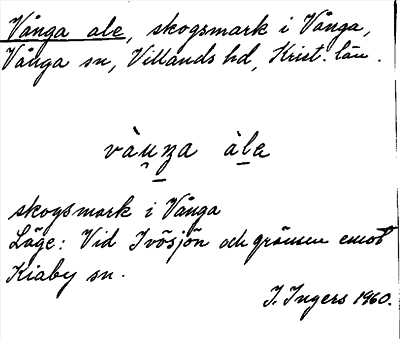 Vånga ale, skogsmark i Vånga,
Vånga sn, Villands hd, Krist. län.
vàu̯ṉza àḻe
skogsmark i Vånga
Läge: Vid Ivösjön och gränsen emot
Kiaby sn.
I. Ingers 1960.